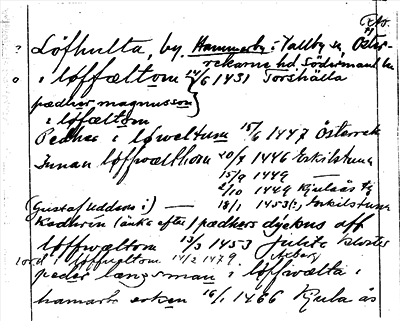 Löfhulta, by, Hammarby i Vallby sn, Öster-
rekarne hd Södermanl. län
i løffæltom 14/6 1431 Torshälla
pædher magnusson
i løffæltom
Pedher i løweltum 15/6 1447 Österrek
Innan løffwælthom 20/9 1446 Eskilstuna
15/9 1449 —
2/10 1449 Kjulaås tg
(Gustaf Uddens i) — 18/1 1453(?) Eskilstuna
Kadhrin (änka efter) pædhers dyækns aff
løffwæltom 13/3 1453 Julita kloster
i løffueltom 14/2 1479 Axberg
peder langxman i løffwælta i
hamarbr sokn 16/1 1466 Kjula ås